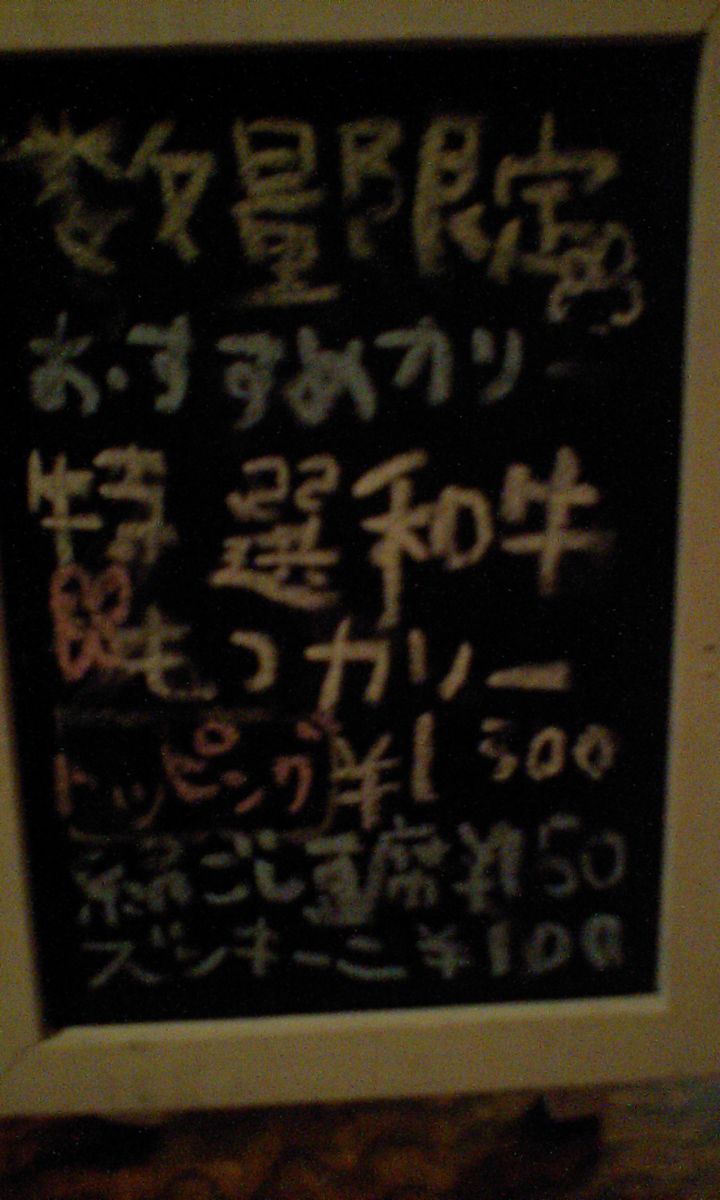 数量限定
おすすめカリー
特選和牛
もつカリー
トッピング ¥1300
絹ごし豆腐 ¥150
ズッキーニ ¥100